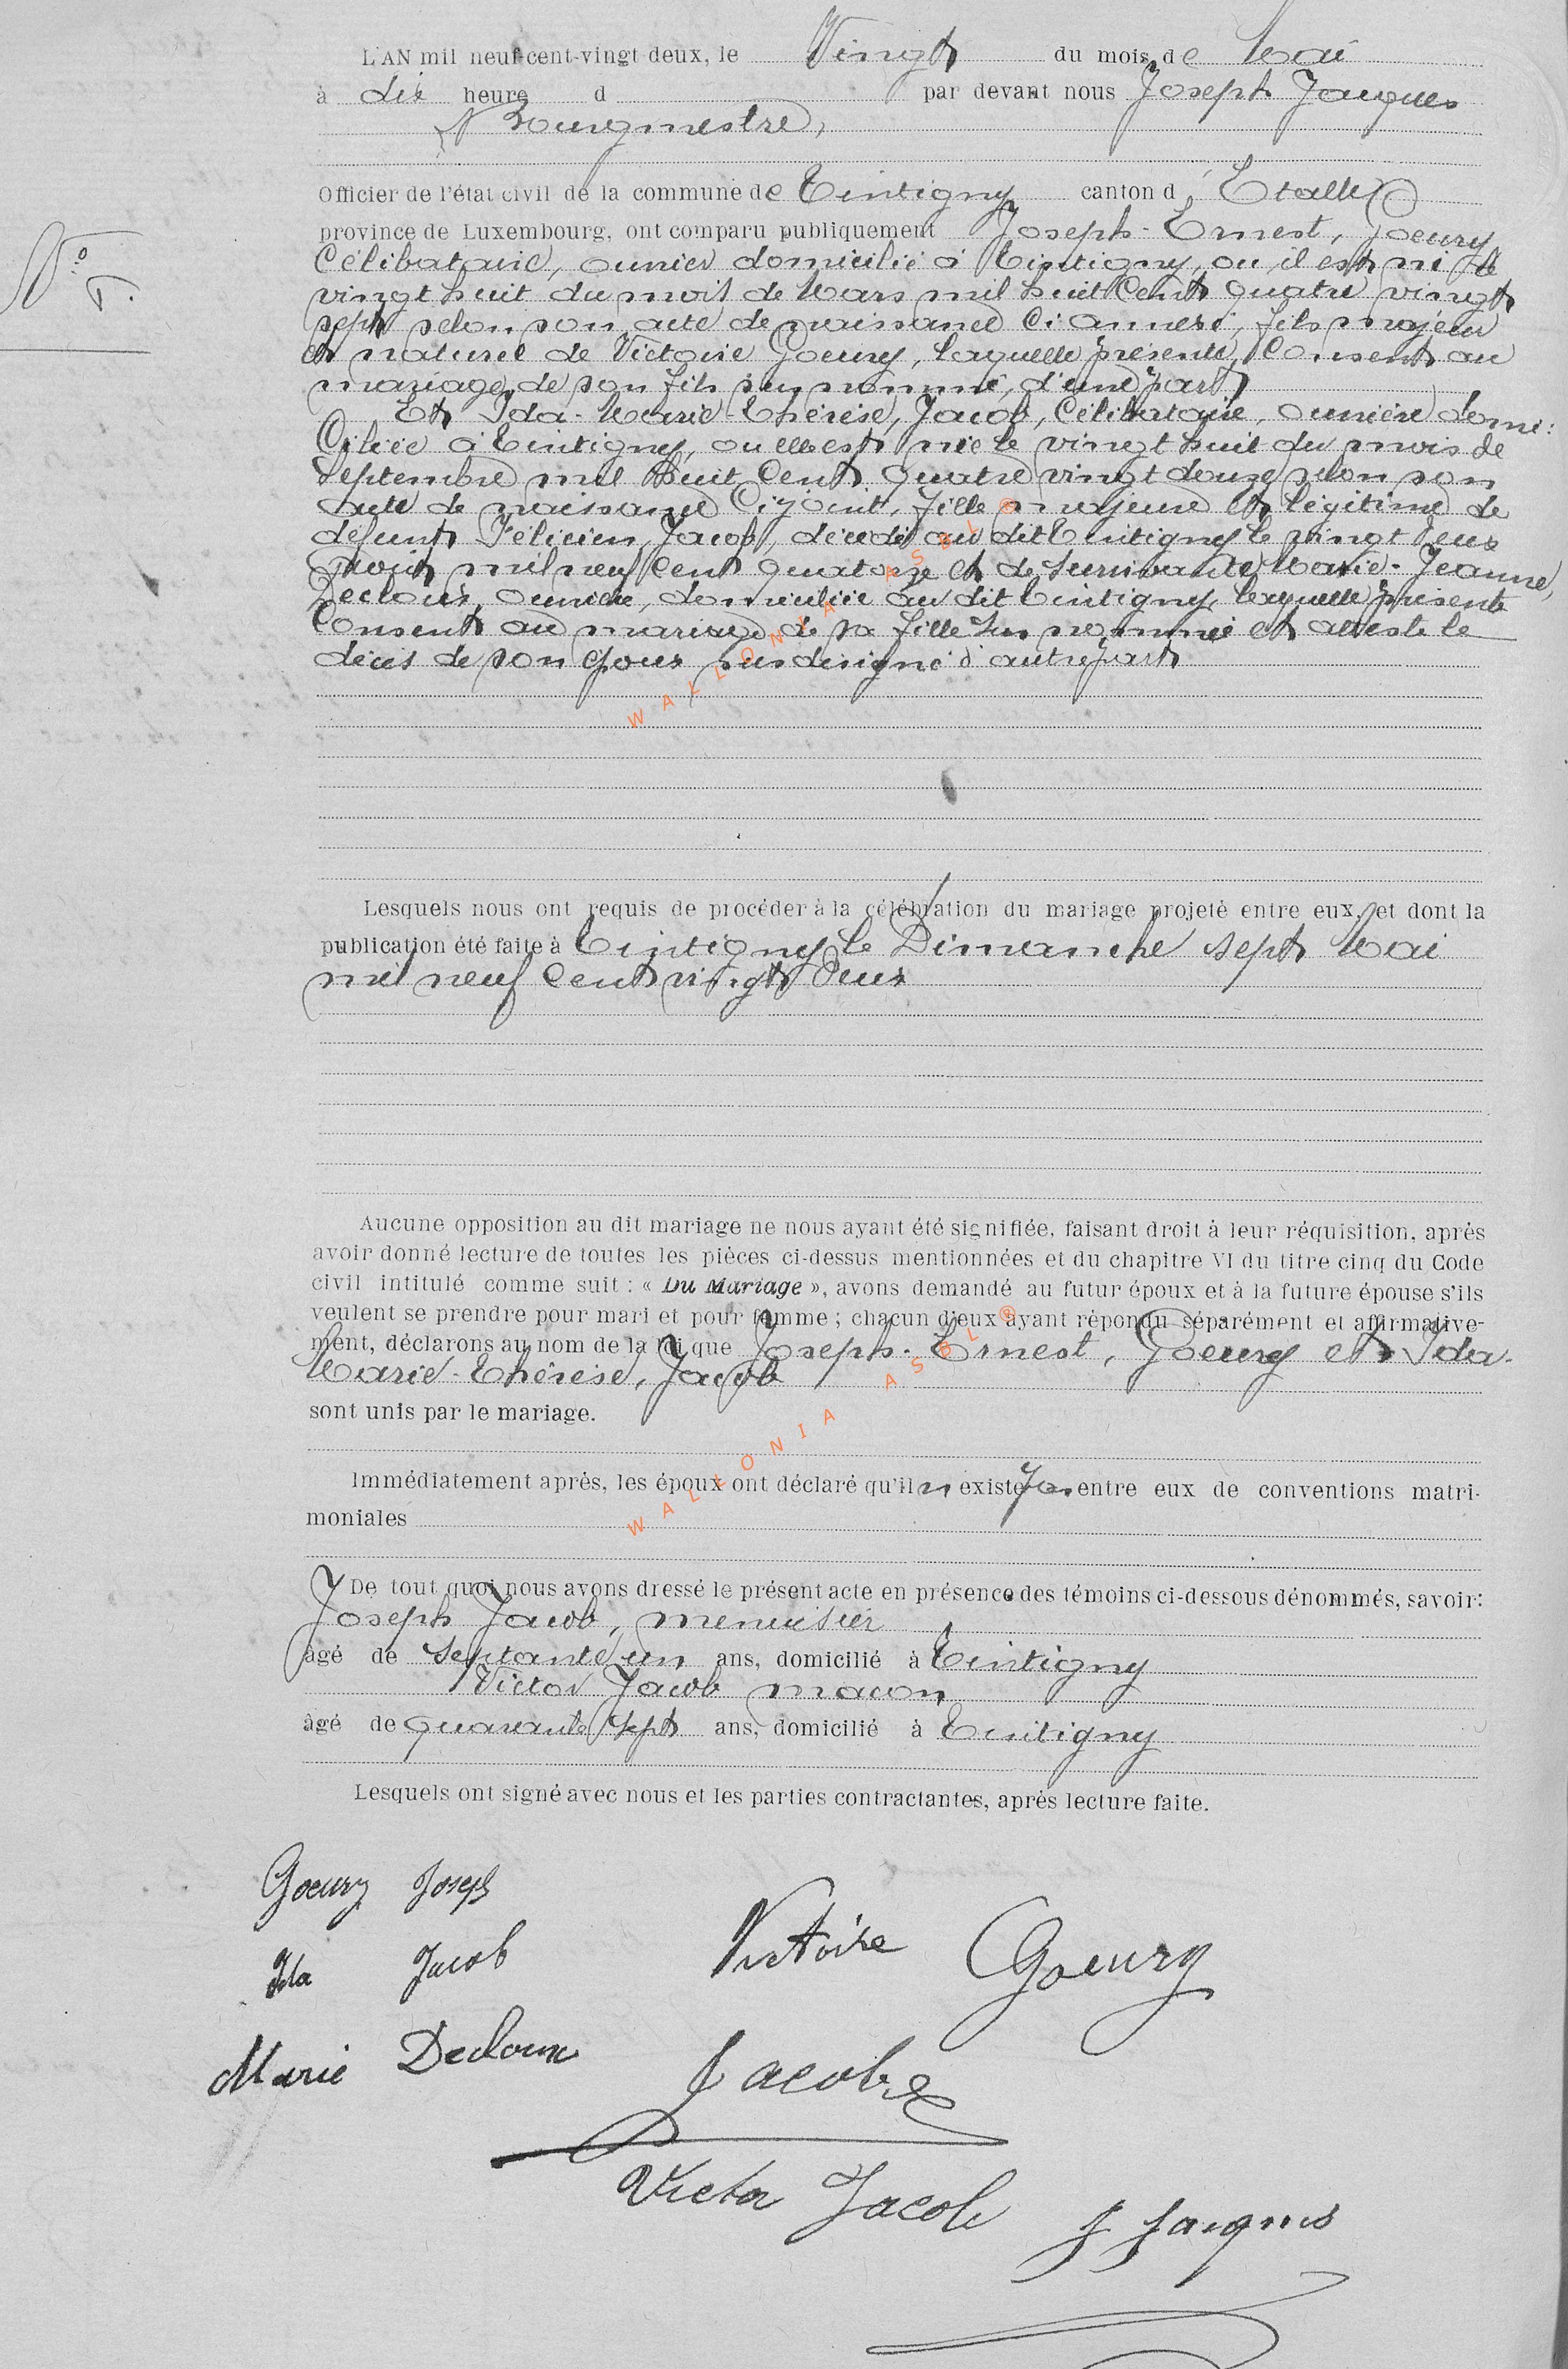 L'AN mil neuf-cent-vingt-deux, le Vingt du mois de Mai
à dix heure d par devant nous Joseph Jacques
Bourgmestre,
Officier de l'état civil de la commune de Tintigny canton d'Etalle
province de Luxembourg, ont comparu publiquement Joseph-Ernest, Goeury
Célibataire, ouvrier domicilié à Tintigny, ou il est né le
vingt huit du mois de Mars mil huit Cent quatre vingt
sept selon son acte de naissance Ci annexé, fils majeur
et naturel de Victoire Goeury, laquelle présente, Consent au
mariage de son fils sus nommé, d'une part
Et Ida-Marie-Thérèse, Jacob, Célibataire, ouvrière domi:
Ciliée à Tintigny, ou elle est née le vingt huit du mois de
Septembre mil huit Cent quatre vingt douze selon son
acte de naissance Ci joint, fille majeure et légitime de
défunt Félicien, Jacob, décédé au dit Tintigny le vingt deux
Août mil neuf Cent quatorze et de survivante Marie-Jeanne,
Decloux, ouvrière, domiciliée au dit Tintigny, laquelle présente
Consent au mariage de sa fille sus nommée et atteste le
décès de son époux sus désigné d'autre part
Lesquels nous ont requis de procéder à la célébration du mariage projeté entre eux, et dont la
publication été faite à Tintigny le Dimanche sept Mai
mil neuf Cent vingt deux
Aucune opposition au dit mariage ne nous ayant été signifiée, faisant droit à leur réquisition, après
avoir donné lecture de toutes les pièces ci-dessus mentionnées et du chapitre VI du titre cinq du Code
civil intitulé comme suit : « Du Mariage », avons demandé au futur époux et à la future épouse s'ils
veulent se prendre pour mari et pour femme ; chacun d'eux ayant répondu séparément et affirmative-
ment, déclarons au nom de la loi que Joseph-Ernest, Goeury et Ida-
Marie-Thérèse, Jacob
sont unis par le mariage.
Immédiatement après, les époux ont déclaré qu'il n existe pas entre eux de conventions matri-
moniales
De tout quoi nous avons dressé le présent acte en présence des témoins ci-dessous dénommés, savoir:
Joseph Jacob, menuisier
âgé de septante un ans, domicilié à Tintigny
Victor Jacob maçon
âgé de quarante sept ans, domicilié à Tintigny
Lesquels ont signé avec nous et les parties contractantes, après lecture faite.
Goeury Joseph
Ida Jacob Victoire Goeury
Marie Decloux Jacob
Victor Jacob J Jacques
WALLONIA ASBL ®
WALLONIA ASBL ®